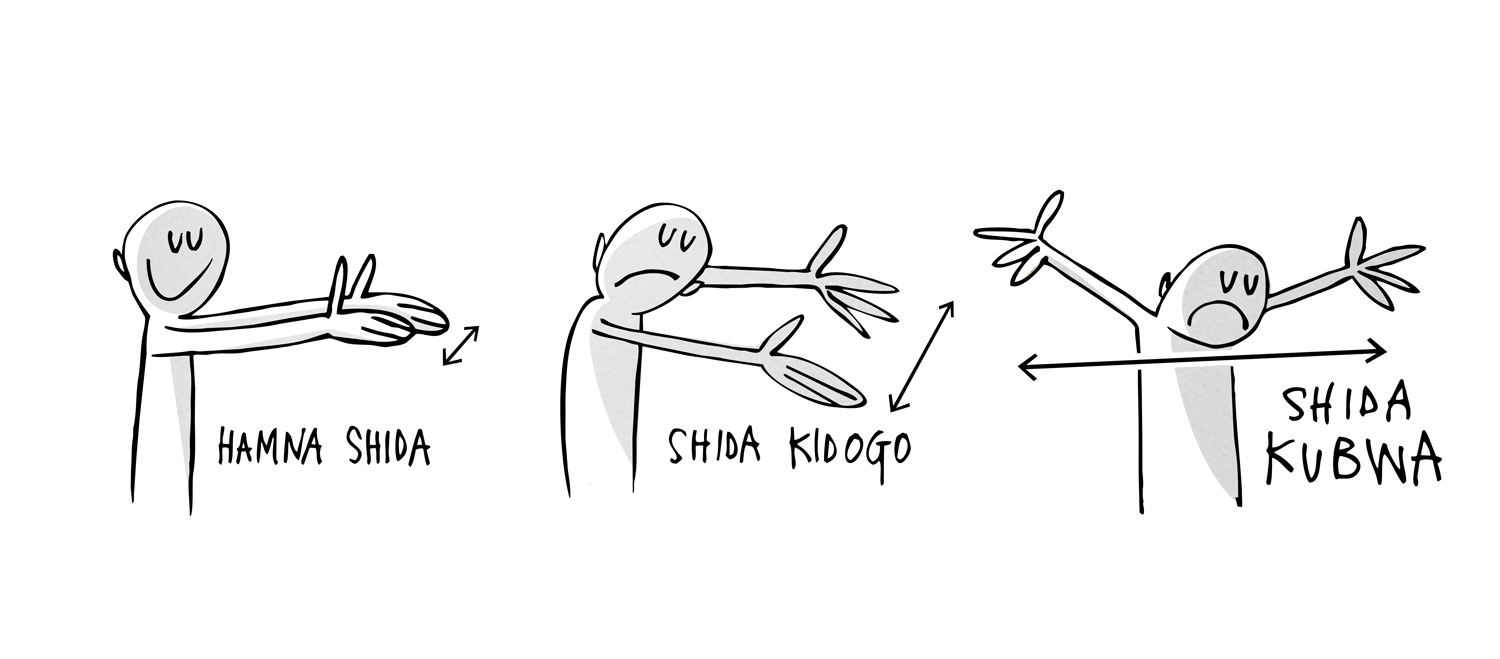 HAMNA SHIDA
SHIDA KIDOGO
SHIDA
KUBWA